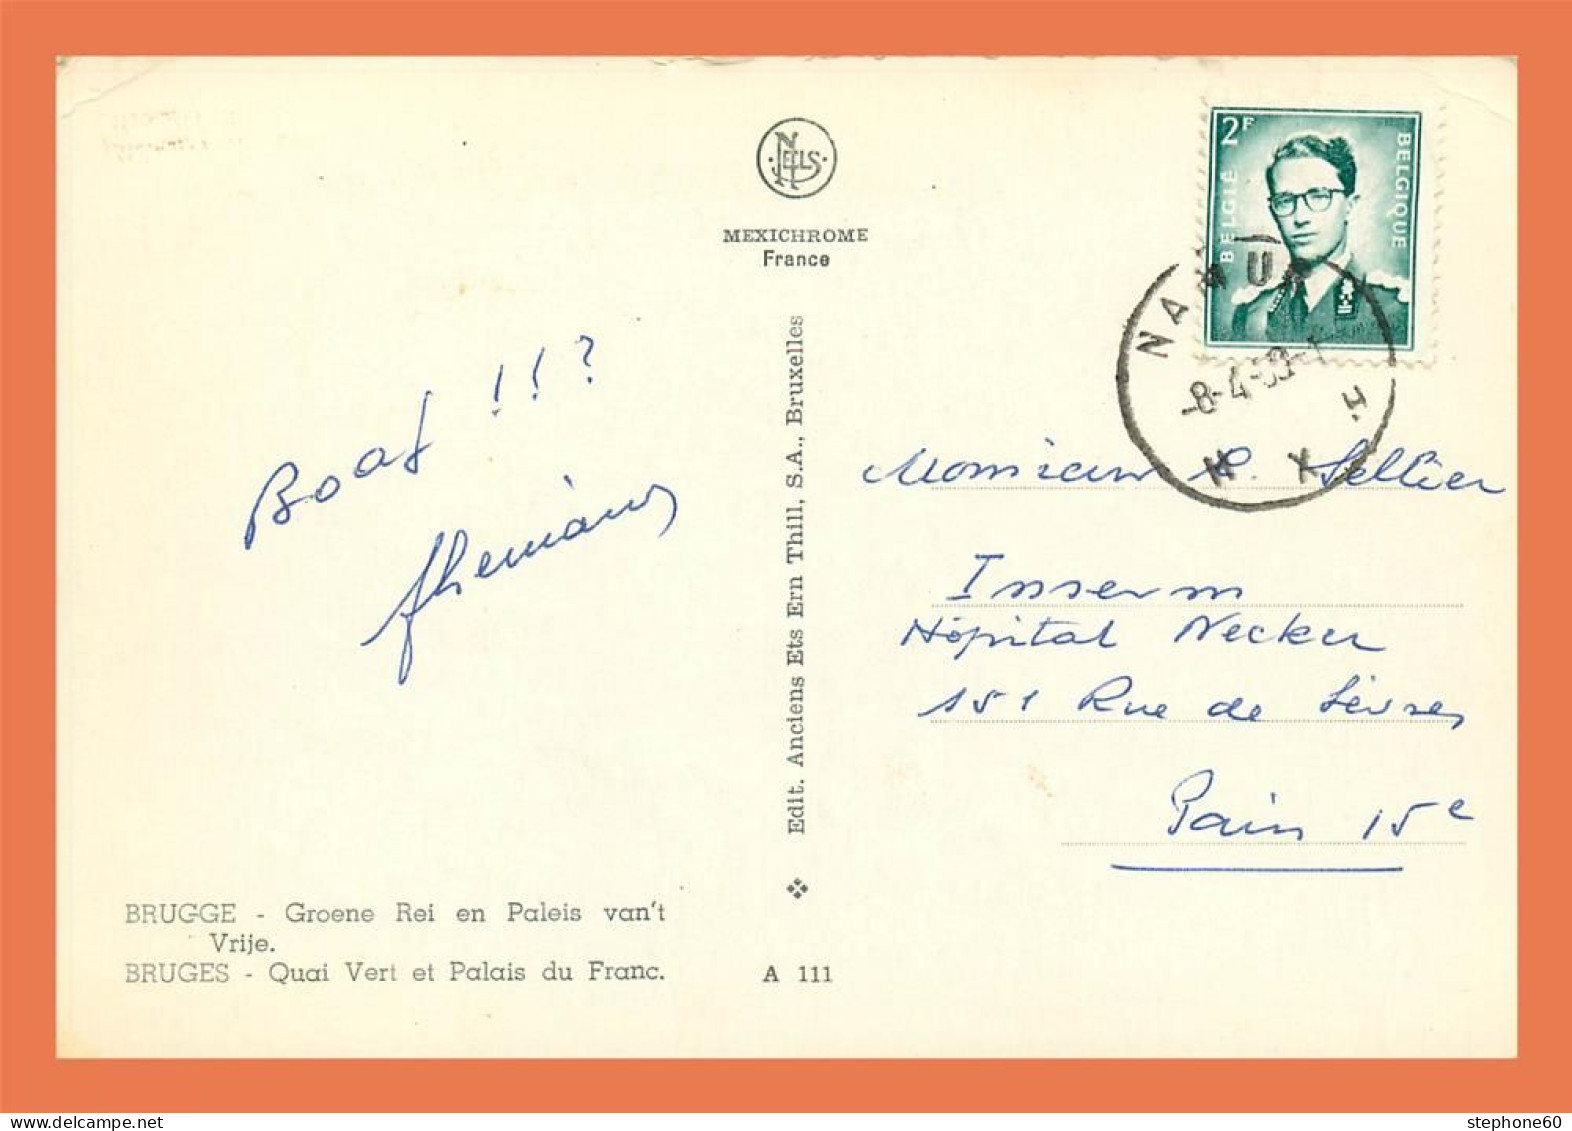 NELS
MEXICHROME
France
2F
BELGIË
BELGIQUE
NAMUR
-8-4-69-1
Boat !!?
Edit. Anciens Ets Ern Thill, S.A., Bruxelles
Monsieur R. Sellier
Inserm
Hôpital Necker
151 Rue de Sèvres
Paris 15e
BRUGGE - Groene Rei en Paleis van't
Vrije.
BRUGES - Quai Vert et Palais du Franc.
A 111
stephone60